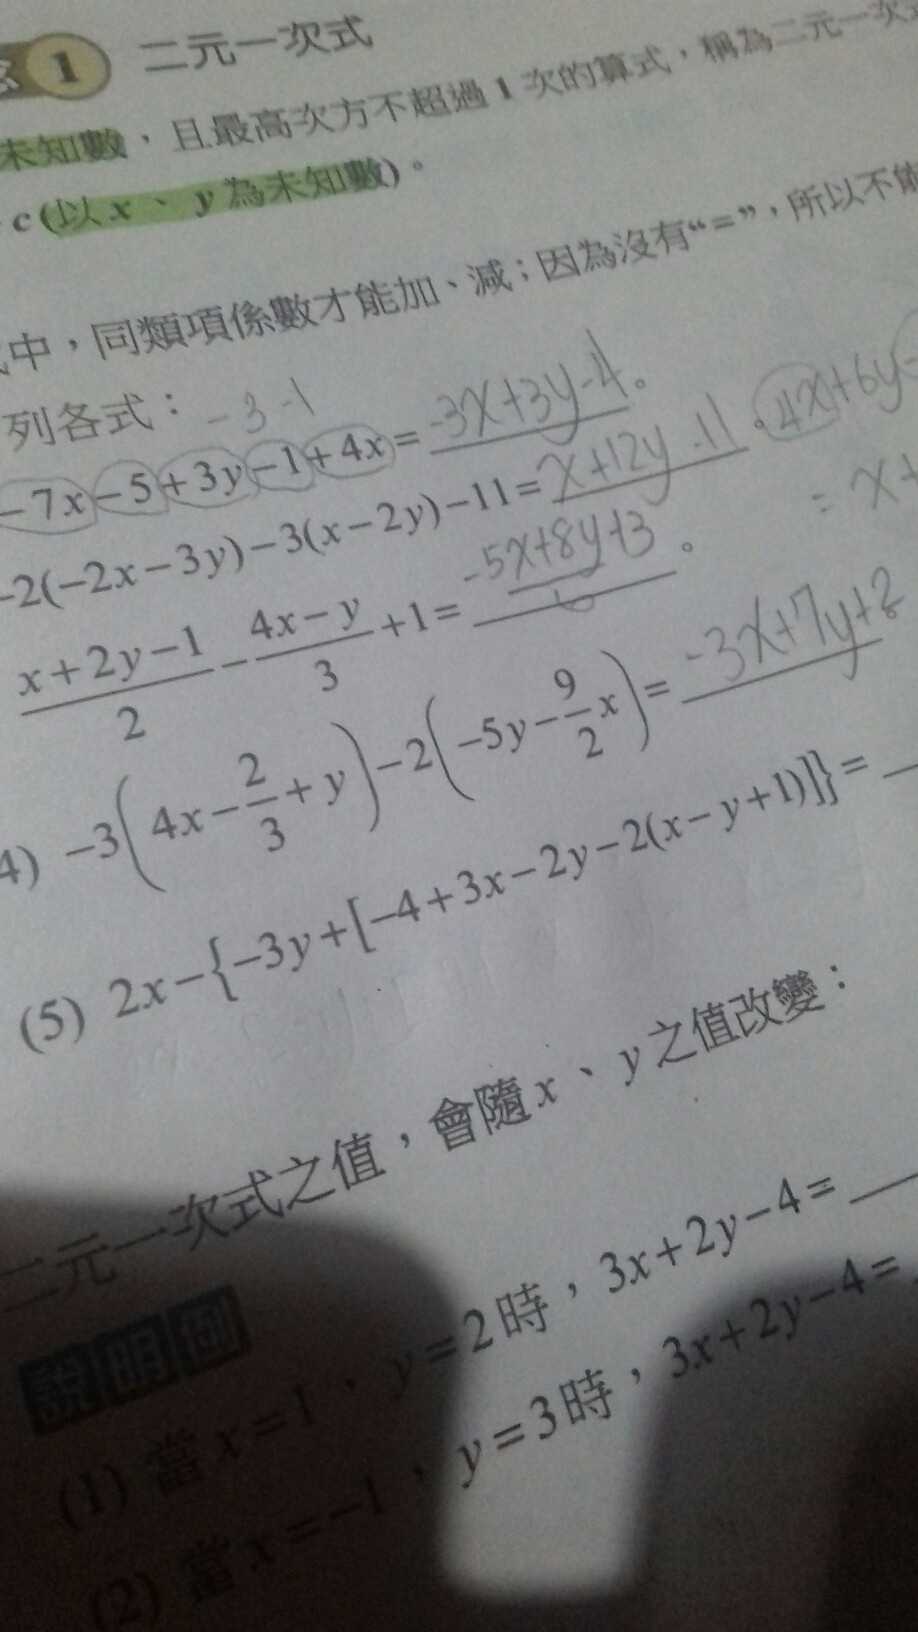 1 二元一次式
未知數，且最高次方不超過1次的算式，稱為二元一次
c(以x、y為未知數)。
中，同類項係數才能加、減；因為沒有“=”，所以不能
列各式： -3-1
-7x-5+3y-1+4x= -3x+3y-4。
-2(-2x-3y)-3(x-2y)-11= x+12y-11。 4x+6y
= x+
(x+2y-1)/2 - (4x-y)/3 +1= (-5x+8y+3)/6。
4) -3(4x-2/3+y)-2(-5y-9/2x)= -3x+7y+2
(5) 2x-{-3y+[-4+3x-2y-2(x-y+1)]}=
二元一次式之值，會隨x、y之值改變：
說明例
(1) 當x=1，y=2時，3x+2y-4=
(2) 當x=-1，y=3時，3x+2y-4=